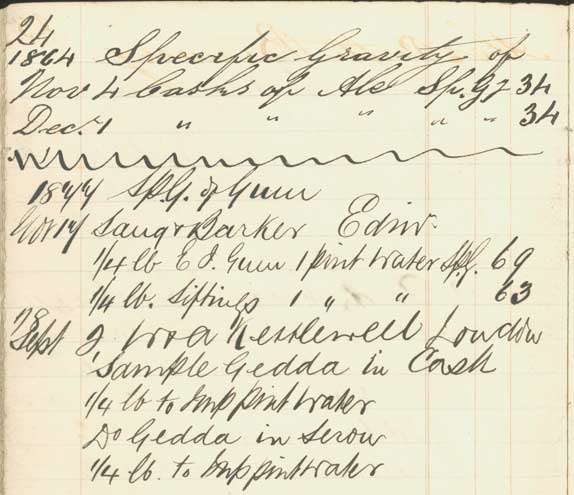 24
1864 Specific Gravity of
Nov 4 Casks of Ale Sp. G 34
Dec. 1 " " " " " 34
1877 Sp.G. of Gum
Nov 17 Barker Edin.
1/4 lb E I. Gum 1 pint water Sp.G. 69
1/4 lb. Siftings 1 " " 63
78
Sept London
Sample Gedda in Cask
1/4 lb to Imp pint water
Do Gedda in Serow
1/4 lb. to Imp pint water